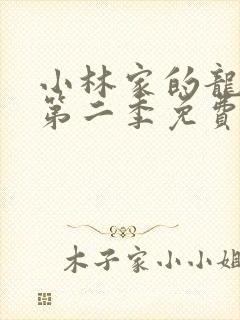 小林家的龍
第二季免費
木子家小小姐